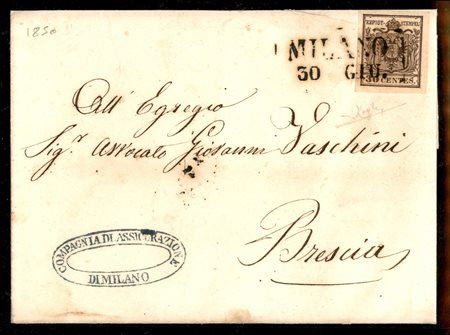 1850
MILANO
30 GIU.
KKPOST-STEMPEL
30 CENTES.
All' Egregio
Sigr. Avvocato Giovanni Vaschini
Brescia
COMPAGNIA DI ASSICURAZIONE
DI MILANO